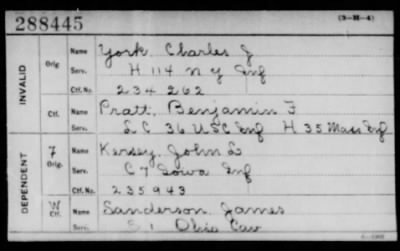 288445
(3-M-4)
INVALID
Orig.
Name York, Charles J
Serv. H 114 N Y Inf
Ctf. No. 234262
Ctf.
Name Pratt, Benjamin F
Serv. L C 36 U S C Inf H 35 Mass Inf
DEPENDENT
7
Orig.
Name Kersey, John L
Serv. C 7 Iowa Inf
Ctf. No. 235943
W
Ctf.
Name Sanderson, James
Serv. 1 Ohio Cav